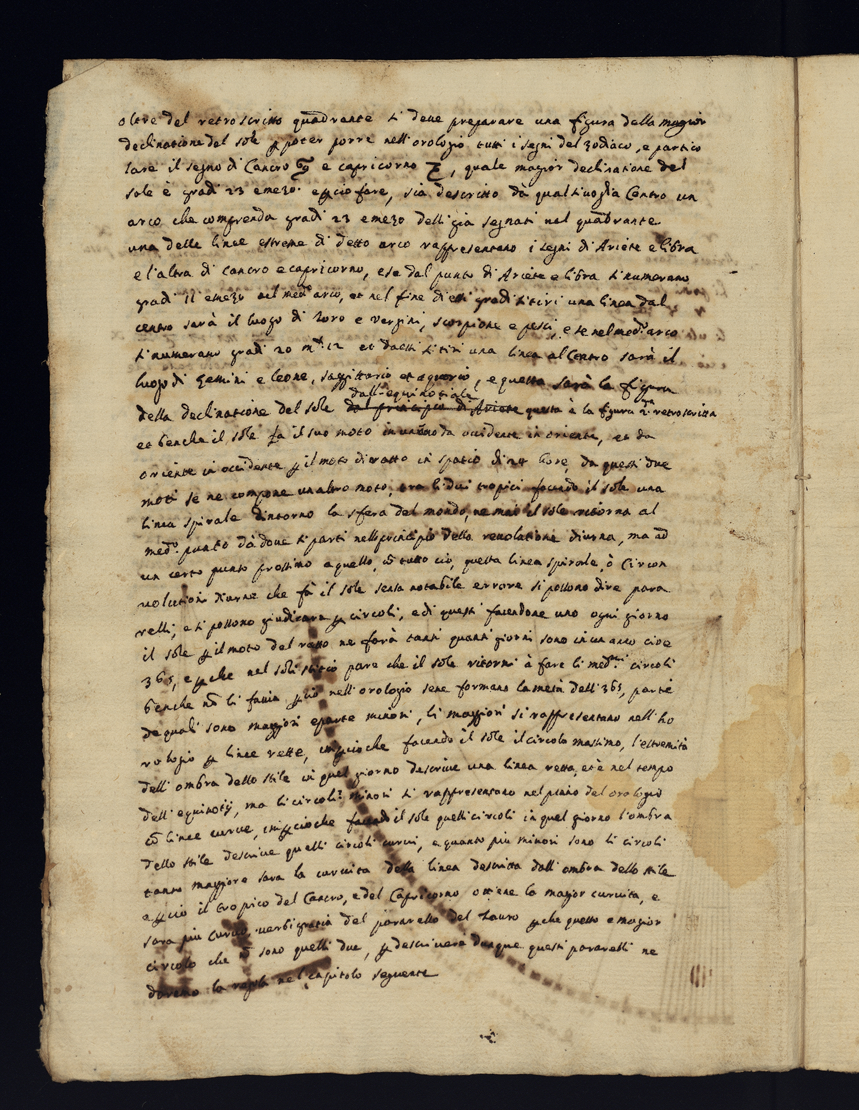 oltre del retroscritto quadrante si deve preparare una figura della magior
declinatione del sole ꝑ poter porre nell'orologio tutti i segni del zodiaco, e partico
lare il segno di Cancro ♋ e capricorno ♑, quale magior declinatione del
sole è gradi 23 e mezo. e ꝑ ciò fare, sia descritto da qualsivoglia Centro un
arco che comprenda gradi 23 e mezo delli già segnati nel quadrante
una delle linee estreme di detto arco rappresentano i segni di Ariete e libra
e l'altra di cancro e capricorno, e se dal punto di Ariete e libra si numerano
gradi 11 e mezo nel med.º arco, et nel fine di essi gradi si tiri una linea dal
centro sarà il luogo di toro e vergini, scorpione e pesci, e se nel med.º arco
si numerano gradi 20 m.ti 12 et da essi si tiri una linea al Centro sarà il
luogo di gemini e leone, sagittario et aquario, e questa sarà la figura
dall'equinotiale
della declinatione del sole dal principio di Ariete questa è la figura 2.ª retroscritta
et benche il sole fa il suo moto in un anno da occidente in oriente, et da
oriente in occidente ꝑ il moto di ratto in spatio di 24 hore, da questi due
moti se ne compone un altro moto, tra li dui tropici facendo il sole una
linea spirale dintorno la sfera del mondo, ne mai il sole ritorna al
med.º punto da dove si parti nell principio della revolutione diurna, ma ad
un certo punto prossimo a quello, cõ tutto ciò, questa linea spirale, ò Circon
volutioni diurne che fà il sole senza notabile errore si possono dire para
relli, e si possono giudicare ꝑ circoli, e di questi facendone uno ogni giorno
il sole ꝑ il moto del ratto ne farà tanti quanti giorni sono in un anno cioe
365, e ꝑche nel solistitio pare che il sole ritorni à fare li med.mi circoli
benche nõ li faccia ꝑciò nell'orologio sene formano la metà dell'365, parte
de quali sono maggiori e parte minori, li maggiori si rappresentano nell'ho
rologio ꝑ linee rette, imꝑcioche facendo il sole il circolo massimo, l'estremità
dell'ombra dello stile in quel giorno descrive una linea retta, et è nel tempo
dell'equinotij, ma li circoli minori si rappresentano nel piano del orologio
cõ linee curve, imꝑcioche facendo il sole quelli circoli in quel giorno l'ombra
dello stile descrive quelli circoli curvi, e quanto più minori sono li circoli
tanto maggiore sara la curvita della linea descritta dall'ombra dello stile
e ꝑciò il tropico del Cancro, e del Capricorno ottiene la magior curvita, e
sara più curvo verbi gratia del pararello del Tauro ꝑche questo e magior
circolo che nõ sono quelli due, ꝑ descrivere dunque questi pararelli ne
daremo la regola nel capitolo seguente